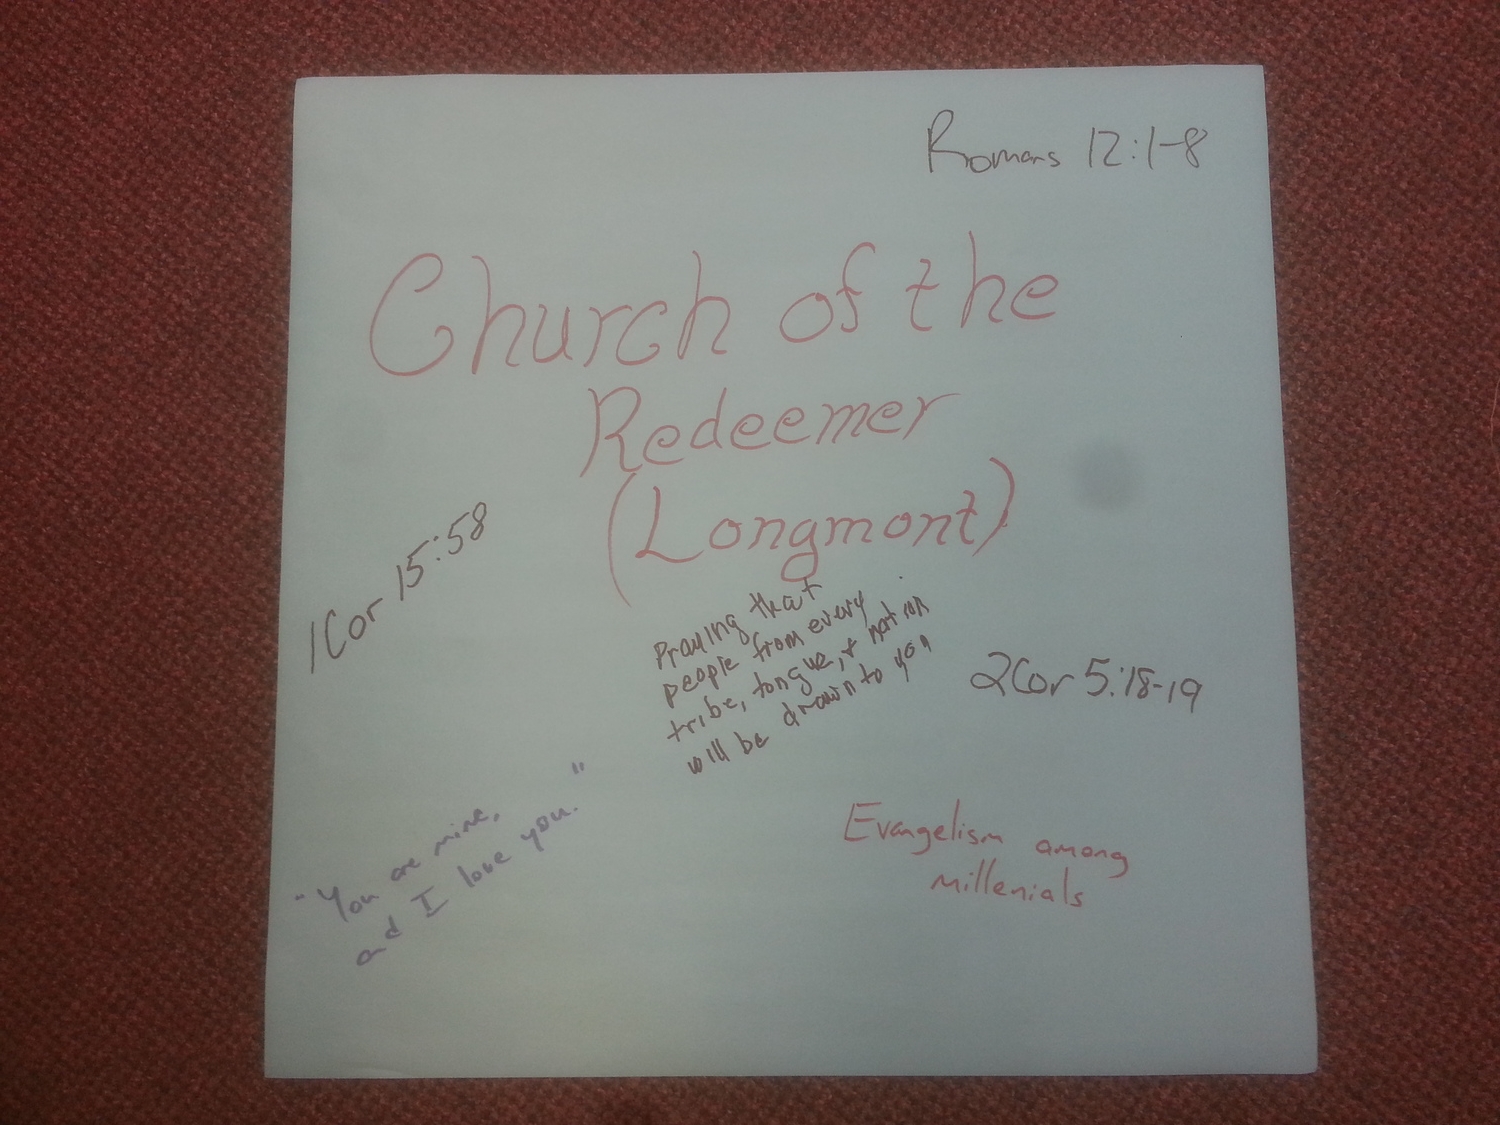 Romans 12:1-8
Church of the
Redeemer
(Longmont)
1Cor 15:58
Praying that
people from every
tribe, tongue, + nation
will be drawn to you
2Cor 5:18-19
"You are mine,
and I love you."
Evangelism among
millenials